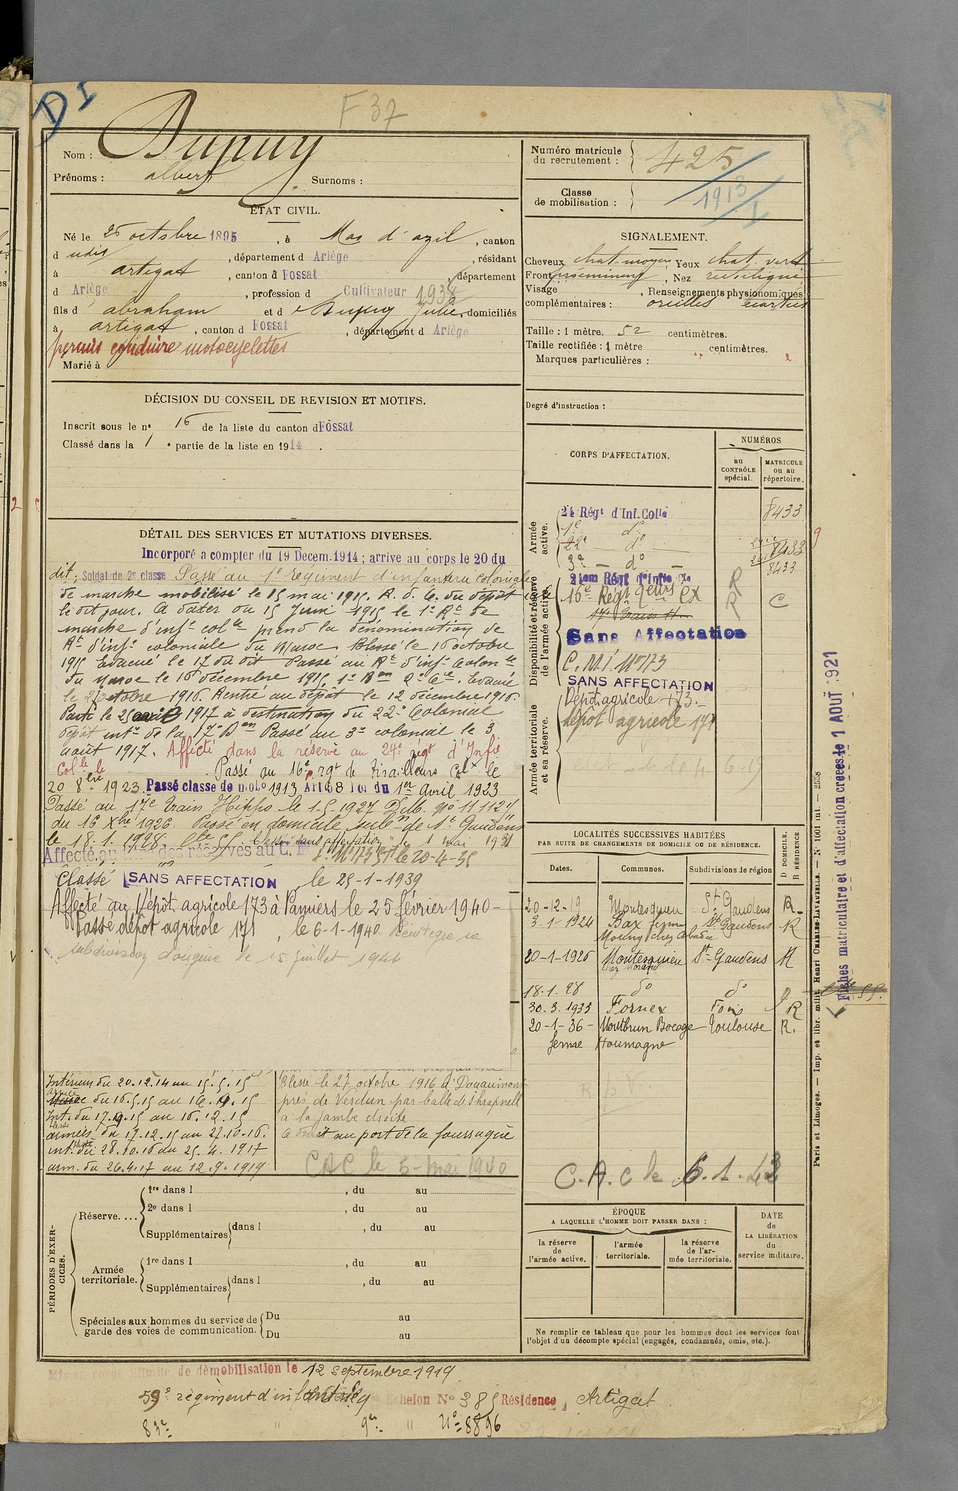 DI
F 37
Nom : Dupuy
Prénoms : albert Surnoms :
ÉTAT CIVIL.
Né le 25 octobre 1895, à Mas d'azil, canton
d udit, département d Ariège, résidant
à artigat, canton d Fossat, département
d Ariège, profession d Cultivateur 1938
fils d abraham et d Dupuy Julie, domiciliés
à artigat, canton d Fossat, département d Ariège
permis conduire motocyclettes
Marié à
DÉCISION DU CONSEIL DE REVISION ET MOTIFS.
Inscrit sous le n° 16 de la liste du canton d Fossat
Classé dans la 1 e partie de la liste en 1914.
DÉTAIL DES SERVICES ET MUTATIONS DIVERSES.
Incorporé a compter du 19 Decem. 1914 ; arrive au corps le 20 du
dit; Soldat de 2e classe Passé au 1e regiment d'infanterie coloniale
de marche mobilisé le 15 mai 1915. R. d. C. du dépôt
le dit jour. A dater du 15 Juin 1915 le 1e Rt de
marche d'infie colle prend la dénomination de
Rt d'infie coloniale du Maroc. Blessé le 16 octobre
1915 Evacué le 17 du dit Passé au Rt d'infie Colonle
du Maroc le 16 décembre 1915, 1e Bon 2e Cie. Evacué
le 27 octobre 1916. Rentré au dépôt le 12 décembre 1916.
Parti le 25 avril 1917 à destination du 22e Colonial
Passé au 3e colonial le 3
août 1917. Affecté dans la réserve au 24e régt d'Infie
Colle. Passé au 16e Rgt de Tirailleurs Colx le
20 8bre 1923. Passé classe de mob 1913 Art 58 loi du 1er Avril 1923
Passé au 17e train Hippo. le 1.5.1927 Pub. N° 11112
du 16 Xbre 1926. Passé en domicile subon de St Gaudens
le 18.1.1928. Classé sans affectation le 1 mai 1931
Affecté au réserves au C. M. I. N° 173 le 20-4-35
Classé SANS AFFECTATION le 25-1-1939
Affecté au Dépôt agricole 173 à Pamiers le 25 février 1940
Passé dépôt agricole 171, le 6-1-1940 réintègre sa
subdivision d'origine le 15 juillet 1944
Intérieur du 20.12.14 au 15.5.15
du 16.5.15 au 16.10.15
Int. du 17.10.15 au 16.12.15
armées du 17.12.15 au 27.10.16
int. du 28.10.16 au 25.4.1917
arm. du 26.4.17 au 12.9.1919
Blessé le 27 octobre 1916 à Douaumont
près de Verdun par balle de shrapnell
à la jambe droite
a droit au port de la fourragère
CAC le 5 - mai 1940
PÉRIODES D'EXERCICES.
Réserve....
1re dans l , du au
2e dans l , du au
Supplémentaires dans l , du au
Armée territoriale.
1re dans l , du au
Supplémentaires dans l , du au
Spéciales aux hommes du service de garde des voies de communication.
Du au
Du au
Numéro matricule du recrutement : 425
Classe de mobilisation : 1913
SIGNALEMENT.
Cheveux chat. moyen, Yeux chat. vert
Front proeminent, Nez rectiligne
Visage , Renseignements physionomiques
complémentaires : oreilles écartées
Taille : 1 mètre 52 centimètres.
Taille rectifiée : 1 mètre centimètres.
Marques particulières :
Degré d'instruction :
CORPS D'AFFECTATION.
NUMÉROS
au CONTRÔLE spécial.
MATRICULE ou au répertoire.
Armée active.
24 Régt d'Inf. Colle 8433
1e do
22e do
3e — do — 8433
Disponibilité et réserve de l'armée active.
21em Régt d'Infie Cle
16e Régt Teurs Cx C
R
R
17e Train H.
Sans Affectation
C. M. I. N° 173
SANS AFFECTATION
Armée territoriale et sa réserve.
Dépôt agricole 173
dépôt agricole 171
LOCALITÉS SUCCESSIVES HABITÉES
PAR SUITE DE CHANGEMENTS DE DOMICILE OU DE RÉSIDENCE.
Dates. Communes. Subdivisions de région D DOMICILE, R RÉSIDENCE
20-12-19 Montesquieu St Gaudens R
3-1-1924 Bax St Gaudens R
20-1-1926 Montesquieu St Gaudens R
18.1.28 do do
30.3.1935 Fornex Foix R
20-1-36 Montbrun Bocage Toulouse R.
ferme Houmagne
C. A. C le 6.1.43
ÉPOQUE
A LAQUELLE L'HOMME DOIT PASSER DANS :
la réserve de l'armée active.
l'armée territoriale.
la réserve de l'armée territoriale.
DATE de LA LIBÉRATION du service militaire.
Ne remplir ce tableau que pour les hommes dont les services font l'objet d'un décompte spécial (engagés, condamnés, omis, etc.).
Fiches matriculaire et d'affectation créées le 1 AOUT 1921
Paris et Limoges. — Imp. et libr. milit. Henri CHARLES-LAVAUZELLE.
de démobilisation le 12 septembre 1919
59e régiment d'infanterie Echelon N° 385 Résidence, Artigat
83e " 9e " N° 8896